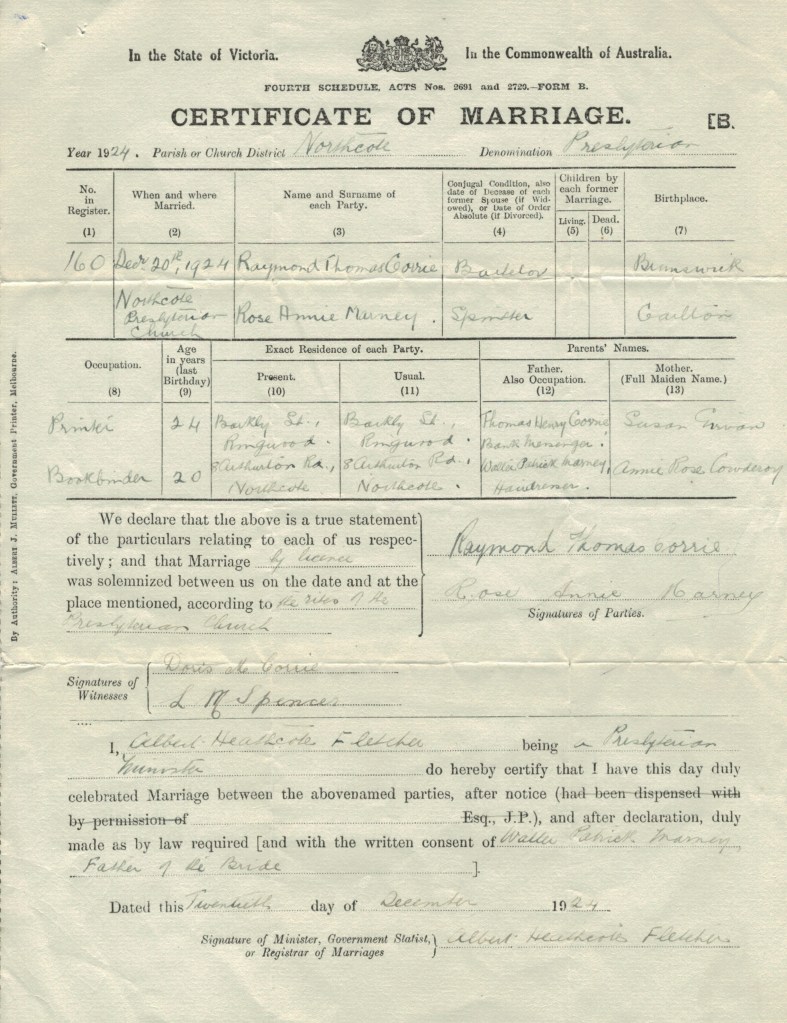 In the State of Victoria. In the Commonwealth of Australia.
FOURTH SCHEDULE, ACTS Nos. 2691 and 2729.—FORM B.
CERTIFICATE OF MARRIAGE. [B.
Year 1924. Parish or Church District Northcote Denomination Presbyterian
No. in Register. (1) When and where Married. (2) Name and Surname of each Party. (3) Conjugal Condition, also date of Decease of each former Spouse (if Widowed), or Date of Order Absolute (if Divorced). (4) Children by each former Marriage. Living. (5) Dead. (6) Birthplace. (7)
160 Decr 20th, 1924 Raymond Thomas Corrie Bachelor Brunswick
Northcote Presbyterian Church Rose Annie Marney. Spinster Carlton
Occupation. (8) Age in years (last Birthday) (9) Exact Residence of each Party. Present. (10) Usual. (11) Parents' Names. Father. Also Occupation. (12) Mother. (Full Maiden Name.) (13)
Printer 24 Barkly St., Ringwood. Barkly St., Ringwood. Thomas Henry Corrie Bank Messenger. Susan
Bookbinder 20 8 Arthurton Rd., Northcote 8 Arthurton Rd., Northcote. Walter Patrick Marney, Hairdresser. Annie Rose Cowderoy
We declare that the above is a true statement
of the particulars relating to each of us respec-
tively; and that Marriage by licence
was solemnized between us on the date and at the
place mentioned, according to the rites of the
Presbyterian Church
Raymond Thomas Corrie
Rose Annie Marney
Signatures of Parties.
Signatures of Witnesses
Doris M Corrie
L M Spencer
I, Albert Heathcote Fletcher being a Presbyterian
Minister do hereby certify that I have this day duly
celebrated Marriage between the abovenamed parties, after notice (had been dispensed with
by permission of Esq., J.P.), and after declaration, duly
made as by law required [and with the written consent of Walter Patrick Marney,
Father of the Bride ].
Dated this Twentieth day of December 1924
Signature of Minister, Government Statist, or Registrar of Marriages Albert Heathcote Fletcher
By Authority: ALBERT J. MULLETT, Government Printer, Melbourne.